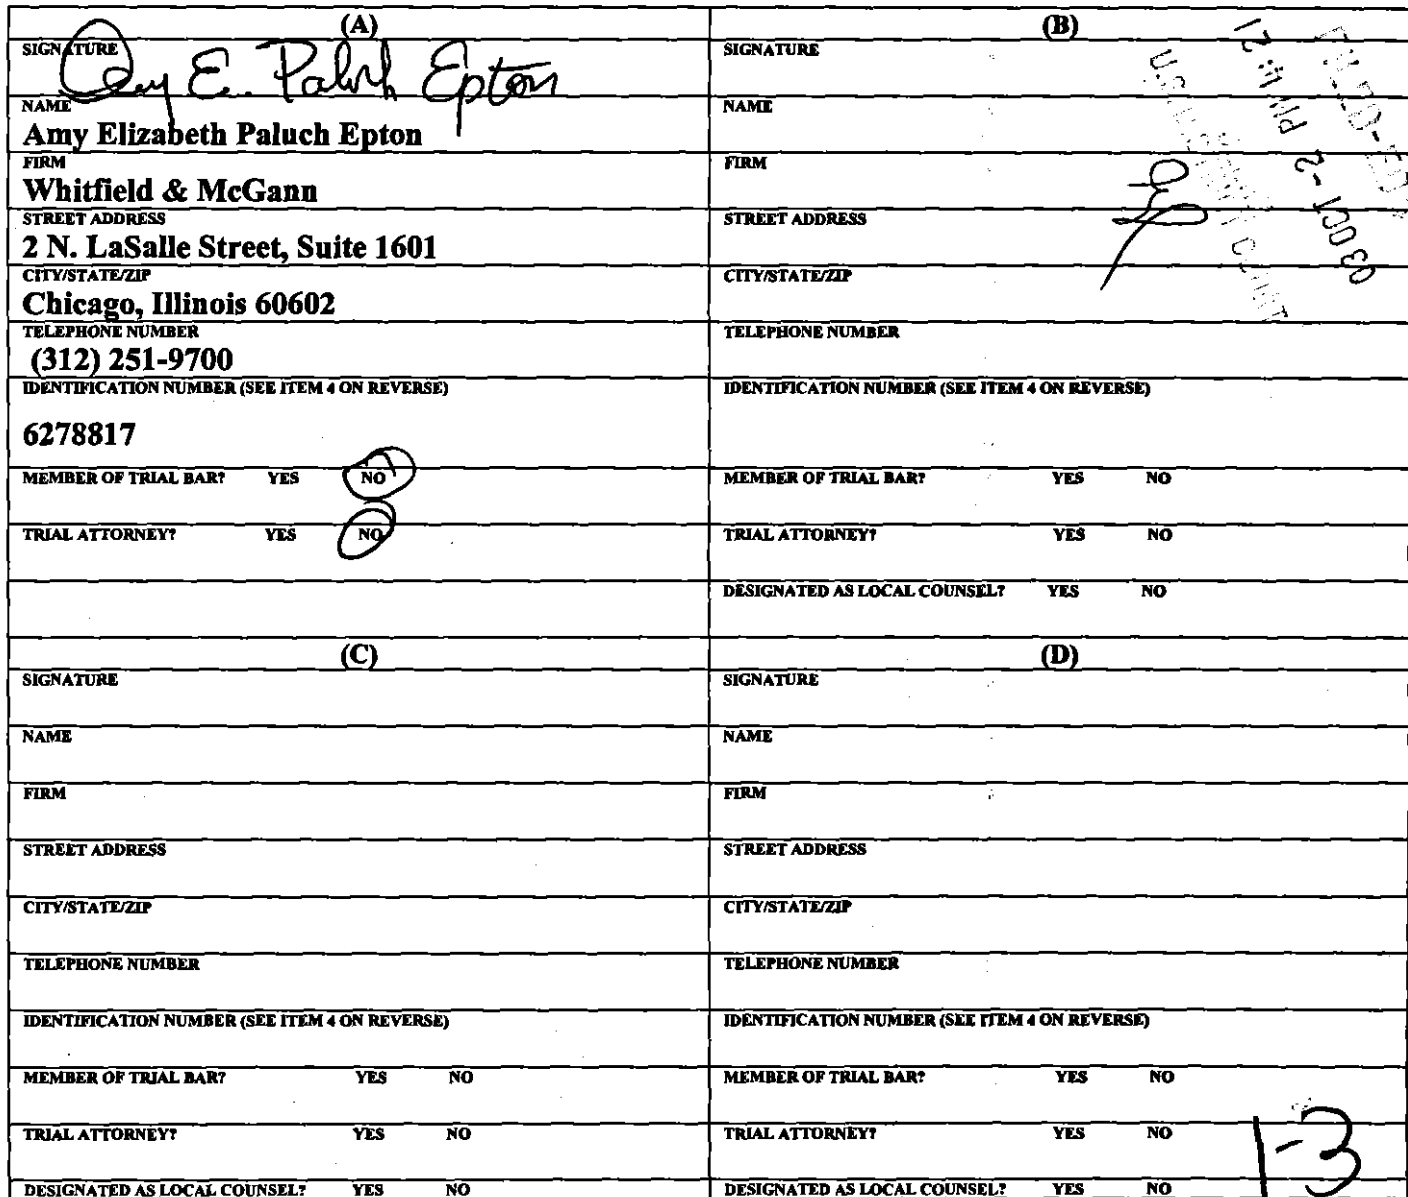 (A)
SIGNATURE
Amy E. Paluch Epton
NAME
Amy Elizabeth Paluch Epton
FIRM
Whitfield & McGann
STREET ADDRESS
2 N. LaSalle Street, Suite 1601
CITY/STATE/ZIP
Chicago, Illinois 60602
TELEPHONE NUMBER
(312) 251-9700
IDENTIFICATION NUMBER (SEE ITEM 4 ON REVERSE)
6278817
MEMBER OF TRIAL BAR? YES NO
TRIAL ATTORNEY? YES NO
(B)
SIGNATURE
NAME
FIRM
STREET ADDRESS
CITY/STATE/ZIP
TELEPHONE NUMBER
IDENTIFICATION NUMBER (SEE ITEM 4 ON REVERSE)
MEMBER OF TRIAL BAR? YES NO
TRIAL ATTORNEY? YES NO
DESIGNATED AS LOCAL COUNSEL? YES NO
03 OCT -2 PM 4: 21
(C)
SIGNATURE
NAME
FIRM
STREET ADDRESS
CITY/STATE/ZIP
TELEPHONE NUMBER
IDENTIFICATION NUMBER (SEE ITEM 4 ON REVERSE)
MEMBER OF TRIAL BAR? YES NO
TRIAL ATTORNEY? YES NO
DESIGNATED AS LOCAL COUNSEL? YES NO
(D)
SIGNATURE
NAME
FIRM
STREET ADDRESS
CITY/STATE/ZIP
TELEPHONE NUMBER
IDENTIFICATION NUMBER (SEE ITEM 4 ON REVERSE)
MEMBER OF TRIAL BAR? YES NO
TRIAL ATTORNEY? YES NO
DESIGNATED AS LOCAL COUNSEL? YES NO
1-3